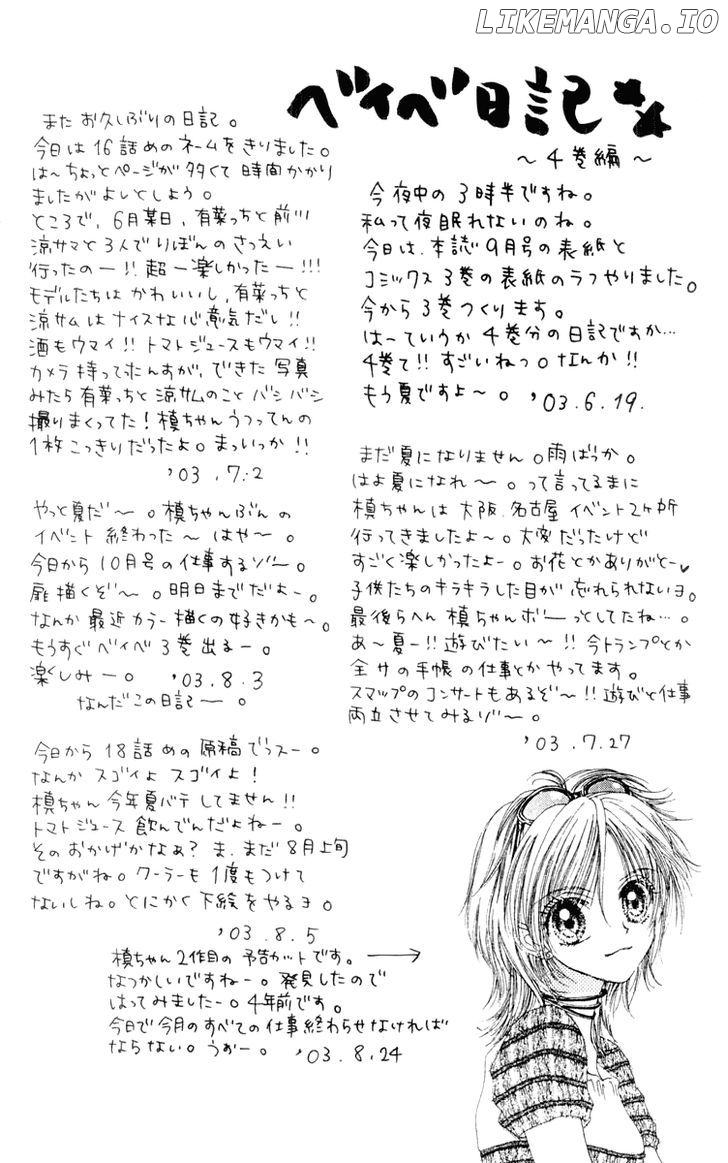 LIKEMANGA.IO
ベイベ日記
～4巻編～
今夜中の3時半ですね。
私って夜眠れないのね。
今日は、本誌9月号の表紙と
コミックス3巻の表紙のラフやりました。
今から3巻つくります。
はーていうか4巻分の日記ですか…
4巻て!!すごいねっ。なんか!!
もう夏ですよ～。'03.6.19.
また お久しぶりの日記。
今日は16話めのネームをきりました。
は～ちょっとページが多くて時間かかり
ましたがよしとしよう。
ところで、6月某日、有菜っちと前川
涼サマと3人でりぼんのさつえい
行ったのー!!超ー楽しかったー!!!
モデルたちはかわいいし、有菜っちと
涼サムはナイスな心意気だし!!
酒もウマイ!!トマトジュースもウマイ!!
カメラ持ってたんすが、できた写真
みたら有菜っちと涼サムのことバシバシ
撮りまくってた!槙ちゃんうつってんの
1枚こっきりだったよ。まっいっか!!
'03.7.2
まだ夏になりません。雨ばっか。
はよ夏になれ～。って言ってるまに
槙ちゃんは大阪、名古屋イベント2ヶ所
行ってきましたよ～。大変だったけど
すごく楽しかったよー。お花とかありがとー♥
子供たちのキラキラした目が忘れられないヨ。
最後らへん槙ちゃんボーっとしてたね…。
あ～夏ー!!遊びたい～!!今トランプとか
全サの手帳の仕事とかやってます。
スマップのコンサートもあるぞ～!!遊びと仕事
両立させてみるゾ～。
'03.7.27
やっと夏だ～。槙ちゃんぶんの
イベント終わった～はや～。
今日から10月号の仕事するゾ～。
扉描くぞ～。明日までだよー。
なんか最近カラー描くの好きかも～。
もうすぐベイベ3巻出るー。
楽しみー。'03.8.3
なんだこの日記ー。
今日から18話めの原稿でっスー。
なんかスゴイよスゴイよ!
槙ちゃん今年夏バテしてません!!
トマトジュース飲んでんだよねー。
そのおかげかなぁ?ま、まだ8月上旬
ですがね。クーラーも1度もつけて
ないしね。とにかく下絵をやるヨ。
'03.8.5
槙ちゃん2作目の予告カットです。→
なつかしいですねー。発見したので
はってみましたー。4年前です。
今日で今月のすべての仕事終わらせなければ
ならない。うぉー。'03.8.24